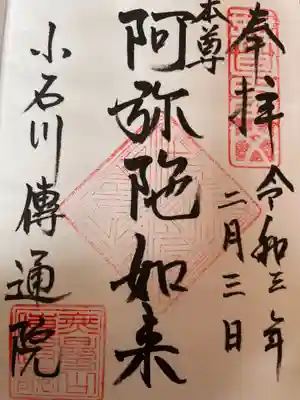 奉拝
令和三年
二月三日
本尊
阿弥陀如来
小石川傳通院